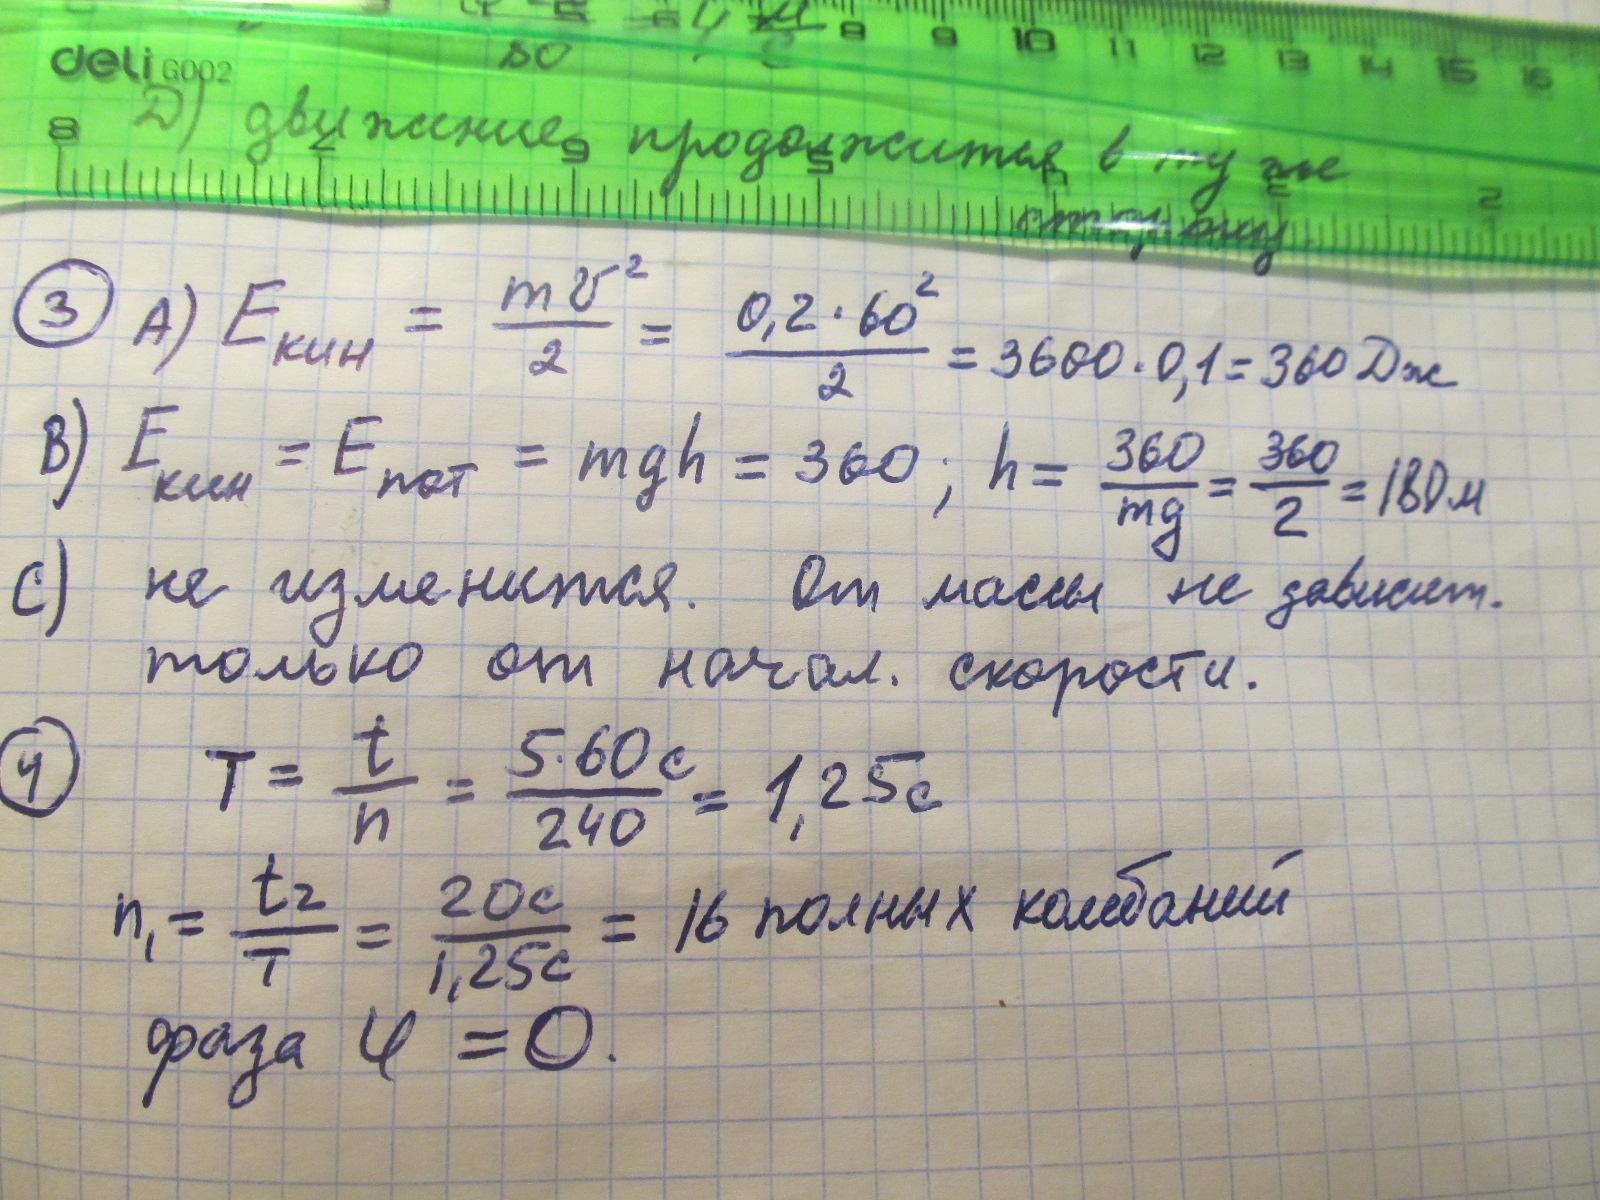 8 9 10 11 12 13 14 15 16
80
deli G002
D) движение продолжится в ту же
сторону.
8 7 6 5 4 3 2
3 A) Eкин = mv²/2 = 0,2·60²/2 = 3600·0,1 = 360 Дж
B) Eкин = Eпот = mgh = 360; h = 360/mg = 360/2 = 180м
C) не изменится. От массы не зависит.
только от начал. скорости.
4 T = t/n = 5·60с/240 = 1,25с
n₁ = t₂/T = 20с/1,25с = 16 полных колебаний
фаза φ = 0.